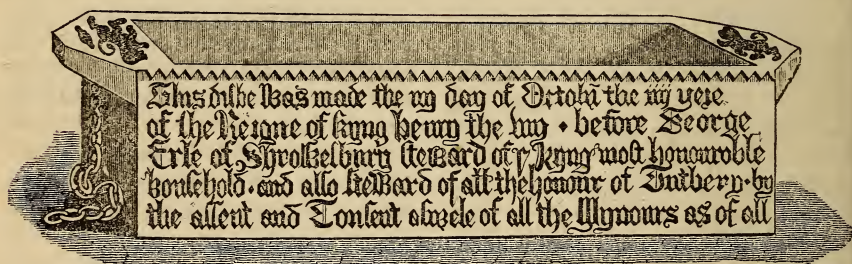 This dishe Was made the day of Octobr the iiij yere
of the Reigne of kyng henry the viij • before George
Erle of Shrowesbury steWard of yͤ kyng most honouroble
houshold • and also steWard of all the honour of Tutbery • by
the assent and Consent aswele of all the Mynours as of all